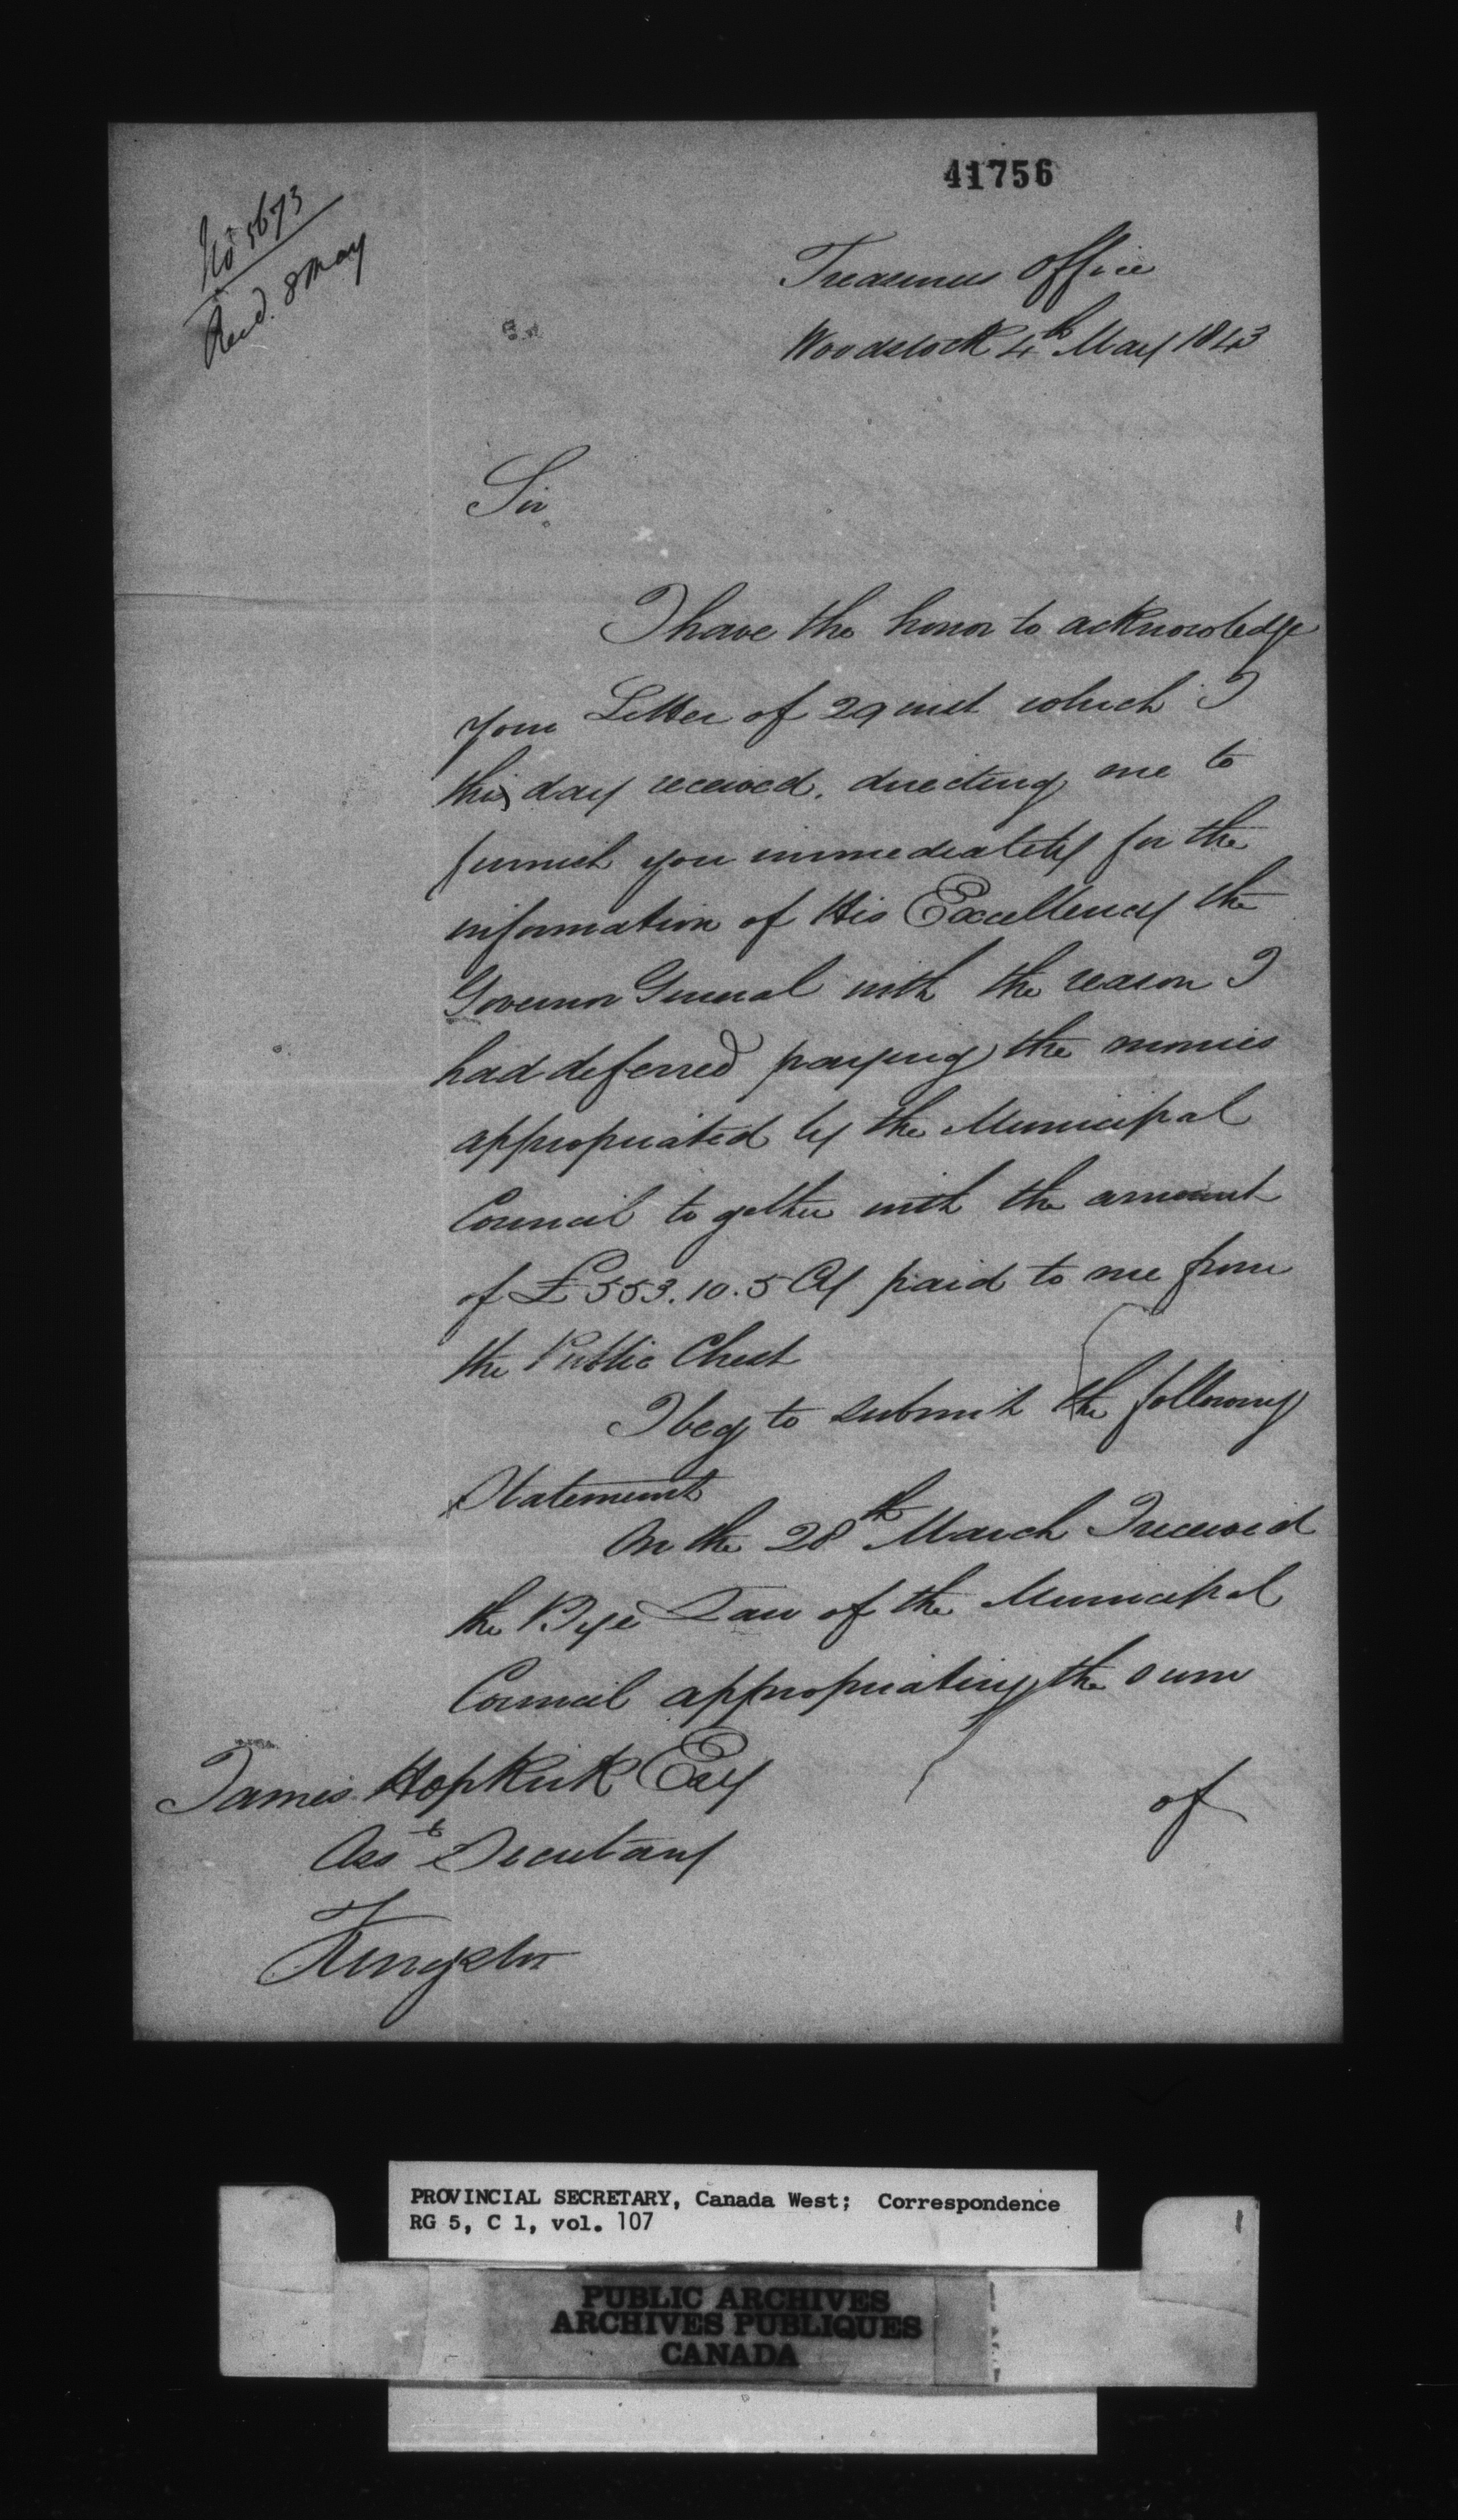 41756
No 5673
Recd. 8 May
Treasurers Office
Woodstock 4th May 1843
Sir
I have the honor to acknowledge
your Letter of 29 inst which I
this day received. directing me to
furnish you immediately for the
information of His Excellency the
Governor General with the reason I
had deferred paying the monies
appropriated by the Municipal
Council to gether with the amount
of £553.10.5 Cy paid to me from
the Public Chest
I beg to submit the following
Statement
On the 28th March I received
the Bye Law of the Municipal
Council appropriating the sum
of
James Hopkirk Esq
Asst Secretary
Kingston
PROVINCIAL SECRETARY, Canada West; Correspondence
RG 5, C 1, vol. 107
PUBLIC ARCHIVES
ARCHIVES PUBLIQUES
CANADA